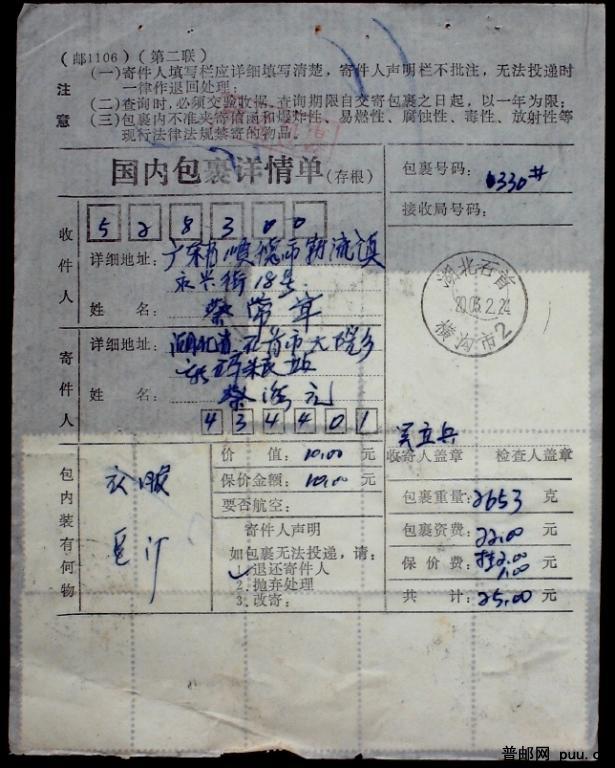 (邮1106)(第二联)
注意
(一)寄件人填写栏应详细填写清楚，寄件人声明栏不批注，无法投递时
一律作退回处理；
(二)查询时，必须交验收据，查询期限自交寄包裹之日起，以一年为限；
(三)包裹内不准夹寄信函和爆炸性、易燃性、腐蚀性、毒性、放射性等
现行法律法规禁寄的物品。
国内包裹详情单(存根)
包裹号码：0330#
接收局号码：
收件人
528300
详细地址：广东省顺德市勒流镇
永兴街18号
姓 名：蔡常
湖北石首
2005.2.24
横沟市2
寄件人
详细地址：湖北省石首市大垸乡
姓 名：蔡
434401
吴立兵
收寄人盖章 检查人盖章
包内装有何物
衣服
价 值：10.00 元
保价金额：10.00 元
要否航空：
寄件人声明
如包裹无法投递，请：
1.退还寄件人
2.抛弃处理
3.改寄：
包裹重量：2653 克
包裹资费：22.00 元
保 价 费：挂2.00 元
1.00
共 计：25.00 元
普邮网 puu.c